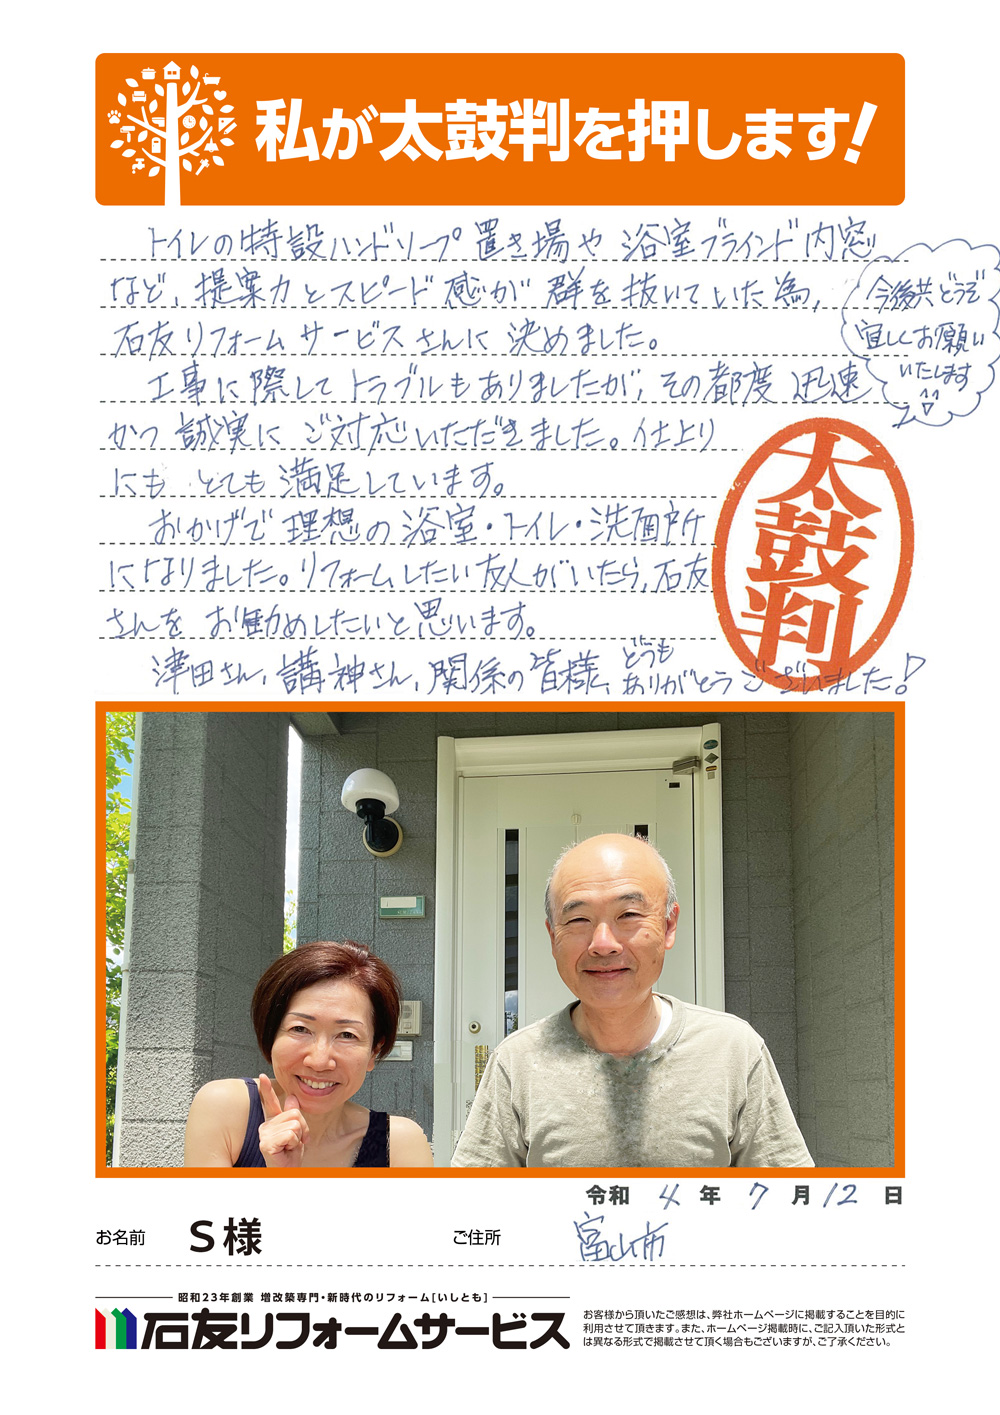 私が太鼓判を押します!
トイレの特設ハンドソープ置き場や浴室ブラインド内窓
など、提案力とスピード感が群を抜いていた為、
石友リフォームサービスさんに決めました。
工事に際してトラブルもありましたが、その都度迅速
かつ誠実にご対応いただきました。仕上り
にもとても満足しています。
おかげで理想の浴室・トイレ・洗面所
になりました。リフォームしたい友人がいたら、石友
さんをお勧めしたいと思います。
津田さん、講神さん、関係の皆様、どうも
ありがとうございました!
今後共どうぞ
宜しくお願い
いたします
太鼓判
令和 4 年 7 月 12 日
お名前 S様 ご住所 富山市
昭和23年創業 増改築専門・新時代のリフォーム[いしとも]
石友リフォームサービス
お客様から頂いたご感想は、弊社ホームページに掲載することを目的に
利用させて頂きます。また、ホームページ掲載時に、ご記入頂いた形式と
は異なる形式で掲載させて頂く場合もございますが、ご了承ください。